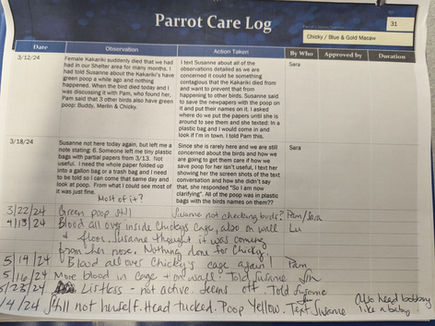 Parrot Care Log
31
Chicky / Blue & Gold Macaw
Date Observation Action Taken By Who Approved by Duration
3/12/24
Female Kakariki suddenly died that we had
in our Shelter area for many months. I
had told Susanne about the Kakariki's have
green poop a while ago and nothing
happened. When the bird died today and I
was discussing it with Pam, who found her,
Pam said that 3 other birds also have green
poop: Buddy, Merlin & Chicky.
I text Susanne about all of the
observations detailed as we are
concerned it could be something
contagious that the Kakariki died from
and want to prevent that from
happening to other birds. Susanne said
to save the newpapers with the poop on
it and put their names on it. I asked
where do we put the papers until she is
around to see them and she texted: In a
plastic bag and I would come in and
look if I'm in town. I told Pam this.
Sara
3/18/24
Susanne not here today again, but left me a
note stating: 6. Someone left me tiny plastic
bags with partial papers from 3/13. Not
useful. I need the whole paper folded up
into a gallon bag or a trash bag and I need
to be told so I can come that same day and
look at poop. From what I could see most of
it was just fine.
Most of it?
Since she is rarely here and we are still
concerned about the birds and how we
are going to get them care if we save
poop for her isn't useful, I text her
showing her the screen shots of the text
conversation and how she didn't say
that, she responded "So I am now
clarifying". All of the poop was in plastic
bags with the birds names on them??
Sara
3/22/24 Green poop still Susanne not checking birds? Pam/Sara
4/13/24 Blood all over inside Chickys cage, also on wall Lu
& floor. Susanne thought it was coming
from her nose. Nothing done for Chicky!
5/14/24 Blood all over Chicky's cage again! Pam
5/16/24 More blood in cage + on wall. Told Susanne
5/23/24 Listless - not active. Seems off. Told Susanne
/4/24 Still not herself. Head tucked. Poop Yellow. Text Susanne
Also head bobbing
like a baby.